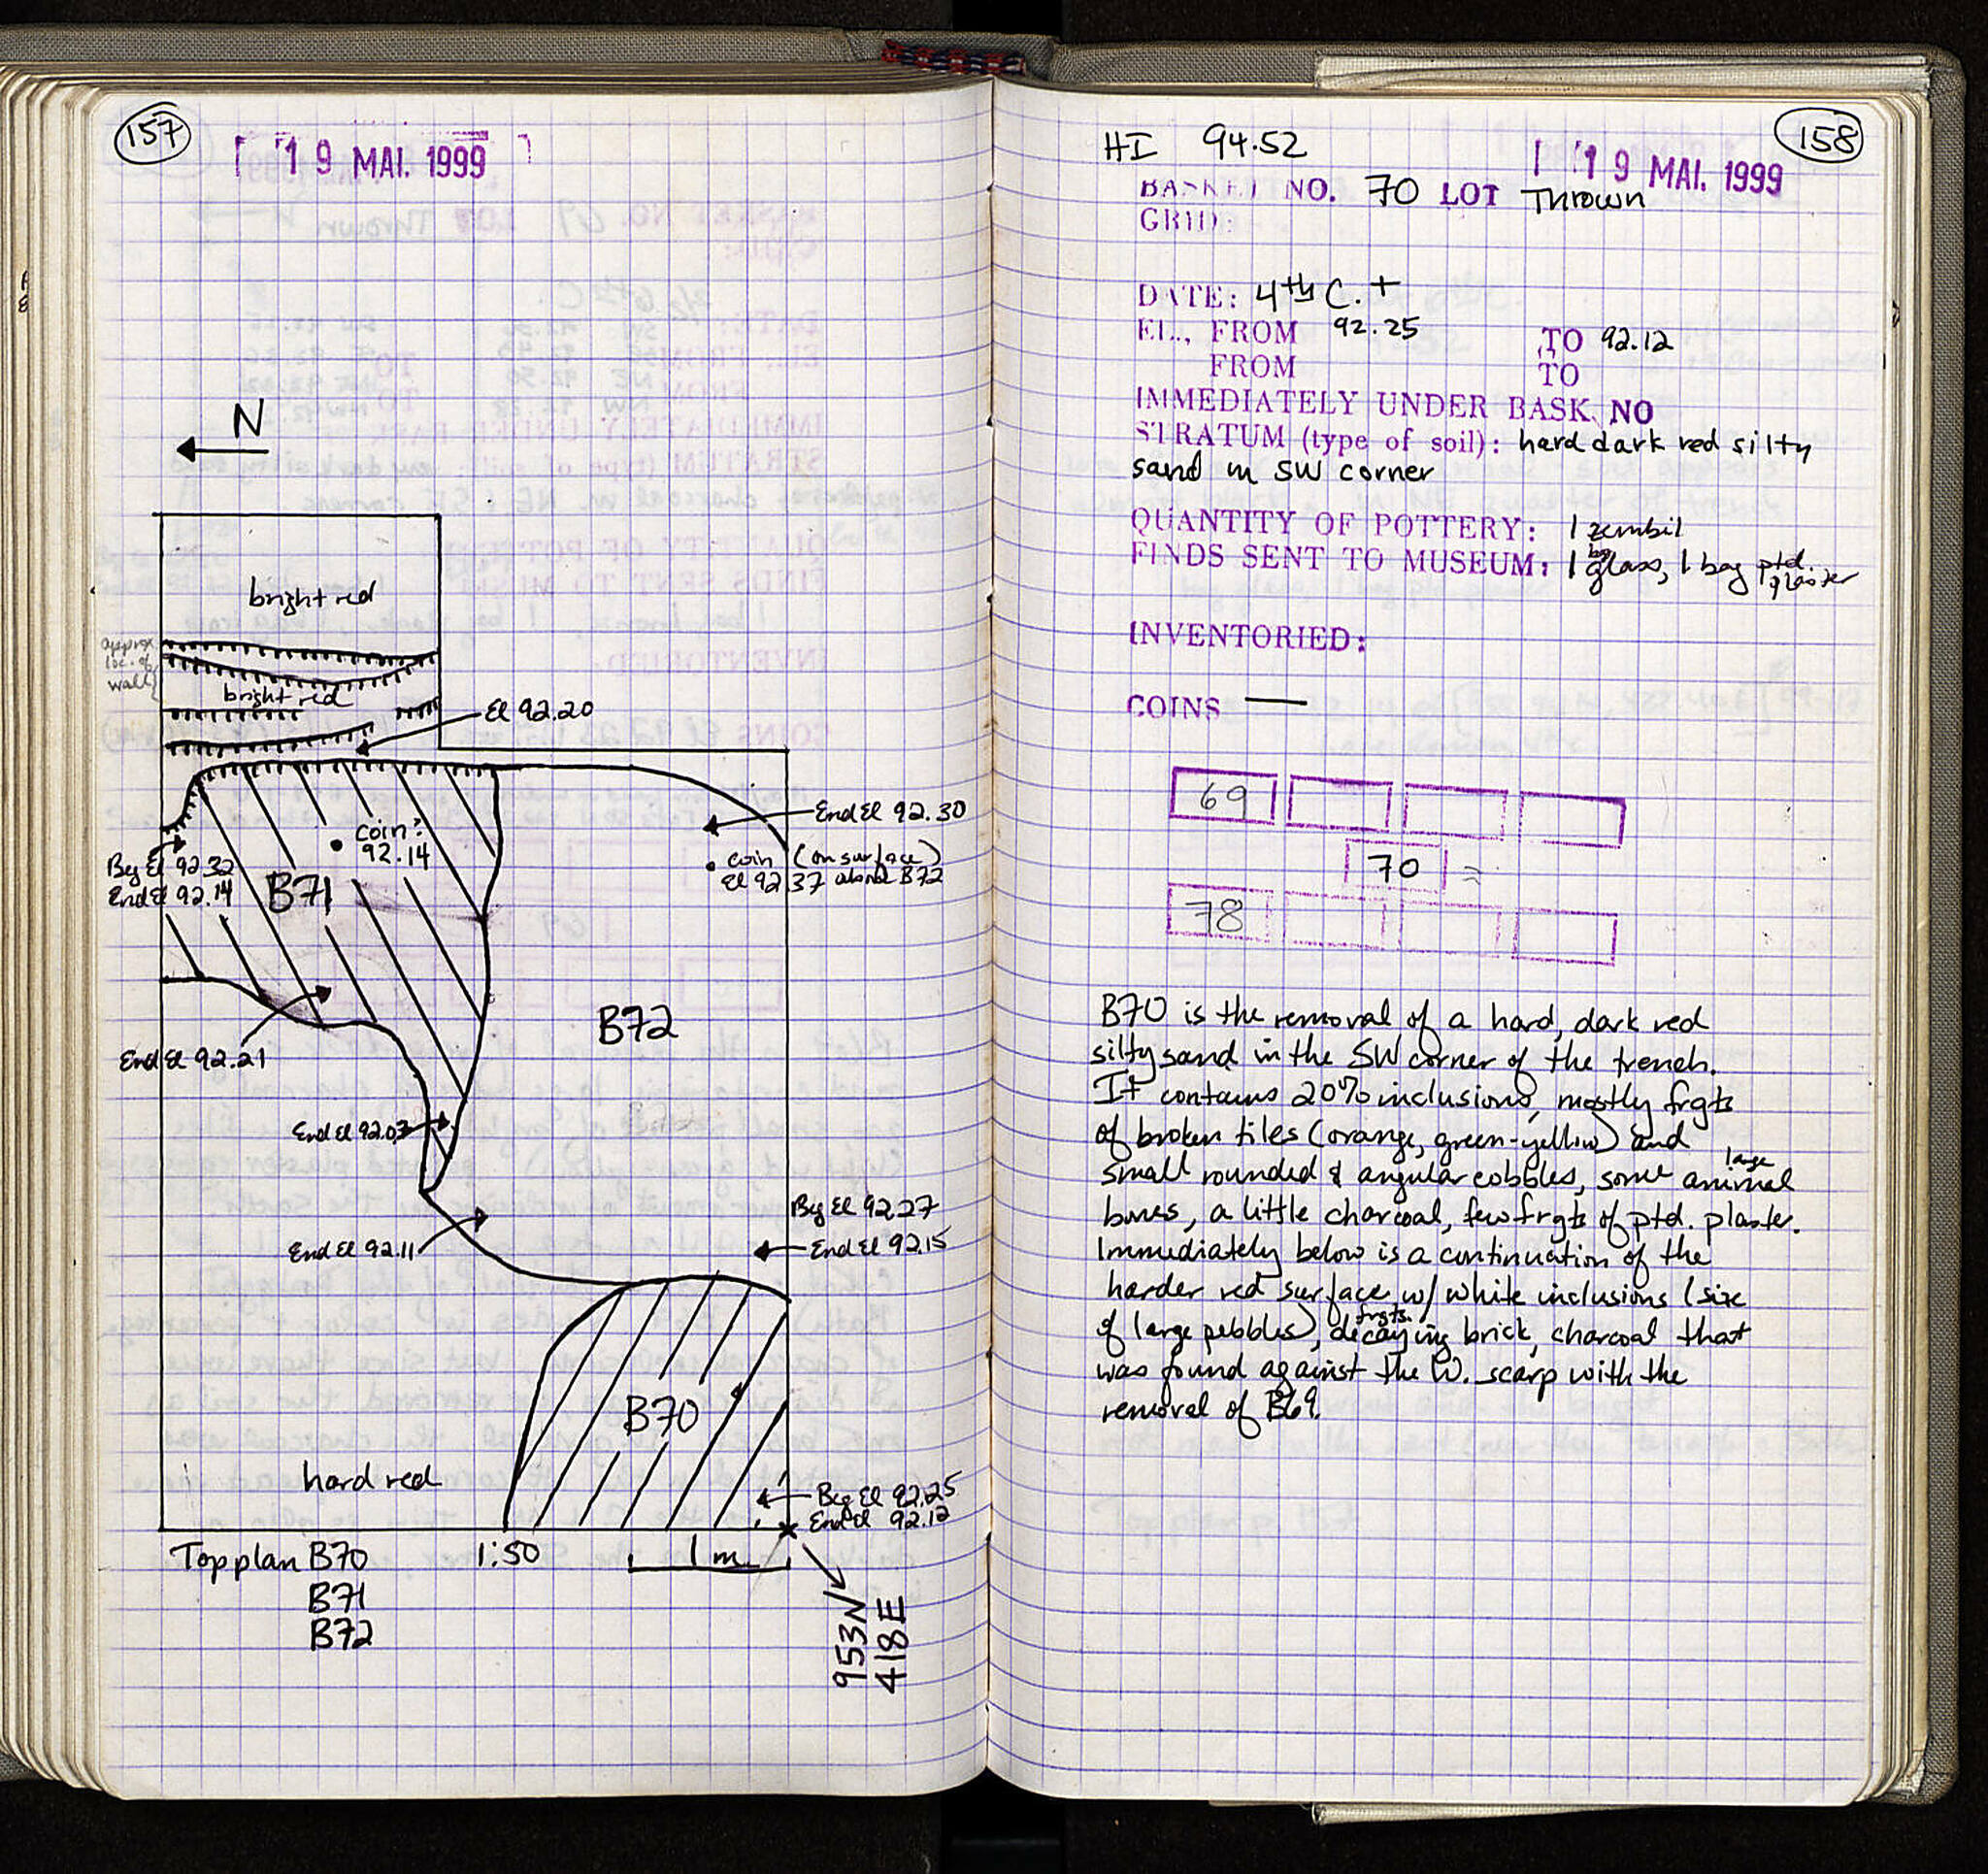 157
19 MAI. 1999
N
bright red
approx.
loc. of
wall
bright red
El 92.20
End El 92.30
coin?
92.14
coin (on surface)
El 92.37 above B72
Beg El 92.32
End El 92.14
B71
B72
End El 92.21
End El 92.03
Beg El 92.27
End El 92.15
End El 92.11
B70
hard red
Beg El 92.25
End El 92.12
Top plan B70 1:50 1 m
B71
B72
953N
418E
158
HI 94.52
19 MAI. 1999
BASKET NO. 70 LOT Thrown
GRID:
DATE: 4th C. +
EL., FROM 92.25 TO 92.12
FROM TO
IMMEDIATELY UNDER BASK. NO
STRATUM (type of soil): hard dark red silty
sand in SW corner
QUANTITY OF POTTERY: 1 zembil
FINDS SENT TO MUSEUM: 1 bg glass, 1 bag ptd. plaster
INVENTORIED:
COINS —
69
70
78
B70 is the removal of a hard, dark red
silty sand in the SW corner of the trench.
It contains 20% inclusions, mostly frgts
of broken tiles (orange, green-yellow) and
small rounded & angular cobbles, some large animal
bones, a little charcoal, few frgts of ptd. plaster.
Immediately below is a continuation of the
harder red surface w/ white inclusions (size
of large pebbles), decaying frgts. brick, charcoal that
was found against the W. scarp with the
removal of B69.